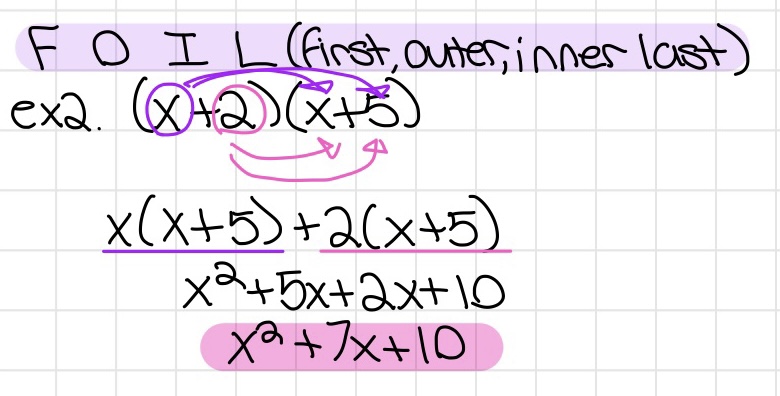 F O I L (first, outer, inner last)
ex2. (x+2)(x+5)
x(x+5)+2(x+5)
x²+5x+2x+10
x²+7x+10